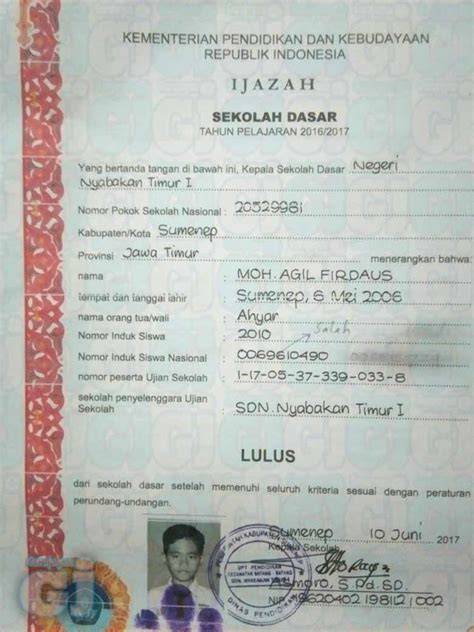 KEMENTERIAN PENDIDIKAN DAN KEBUDAYAAN
REPUBLIK INDONESIA
IJAZAH
SEKOLAH DASAR
TAHUN PELAJARAN 2016/2017
Yang bertanda tangan di bawah ini, Kepala Sekolah Dasar Negeri
Nyabakan Timur I
Nomor Pokok Sekolah Nasional : 20529981
Kabupaten/Kota Sumenep
Provinsi Jawa Timur menerangkan bahwa:
nama : MOH. AGIL FIRDAUS
tempat dan tanggal lahir : Sumenep, 6 Mei 2006
nama orang tua/wali : Ahyar
Nomor Induk Siswa : 2010 Salah
Nomor Induk Siswa Nasional : 0069610490
nomor peserta Ujian Sekolah : 1-17-05-37-339-033-8
sekolah penyelenggara Ujian
Sekolah : SDN. Nyabakan Timur I
LULUS
dari sekolah dasar setelah memenuhi seluruh kriteria sesuai dengan peraturan
perundang-undangan.
Sumenep 10 Juni 2017
Kepala Sekolah
UPT PENDIDIKAN
DINAS PENDIDIKAN
Asmoro, S.Pd.SD.
NIP. 19620402 198112 1 002